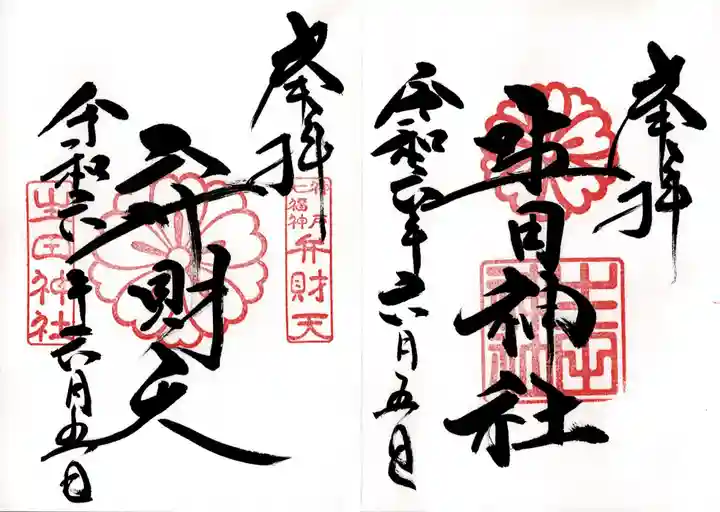 奉拝
生田神社
生田神社
令和六年六月五日
奉拝
神戸
七福神
弁財天
弁財天
令和六年六月五日
生田神社